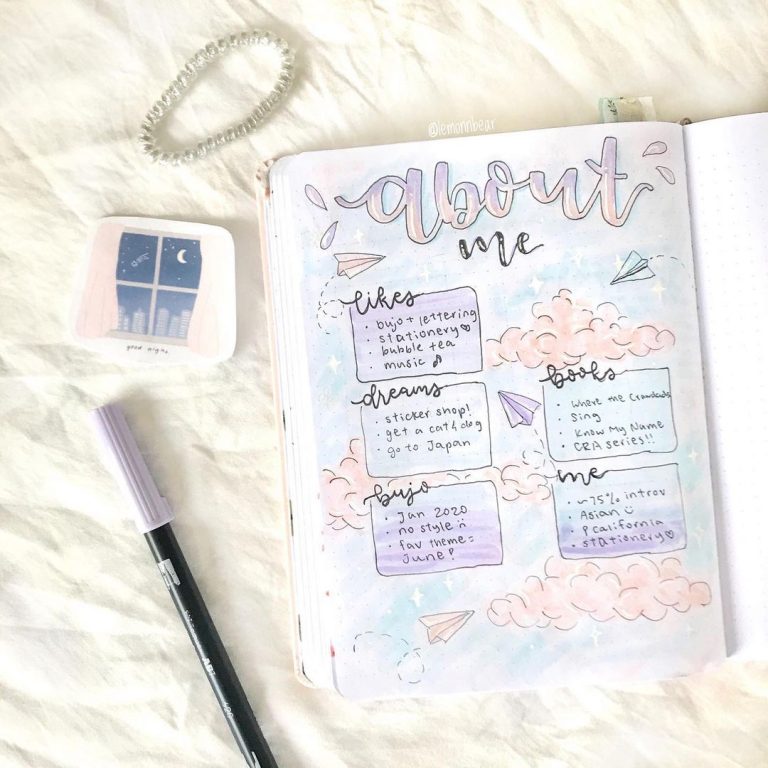 @lemonnbear
about
me
likes
• bujo + lettering
• stationery♡
• bubble tea
• music ♪
dreams
• sticker shop!
• get a cat & dog
• go to Japan
books
• Where the Crawdads
Sing
• Know My Name
• CRA series!!
bujo
• Jan 2020
• no style
• fav theme =
June!
me
• ~75% introv
• Asian
• California
• stationery♡
good night